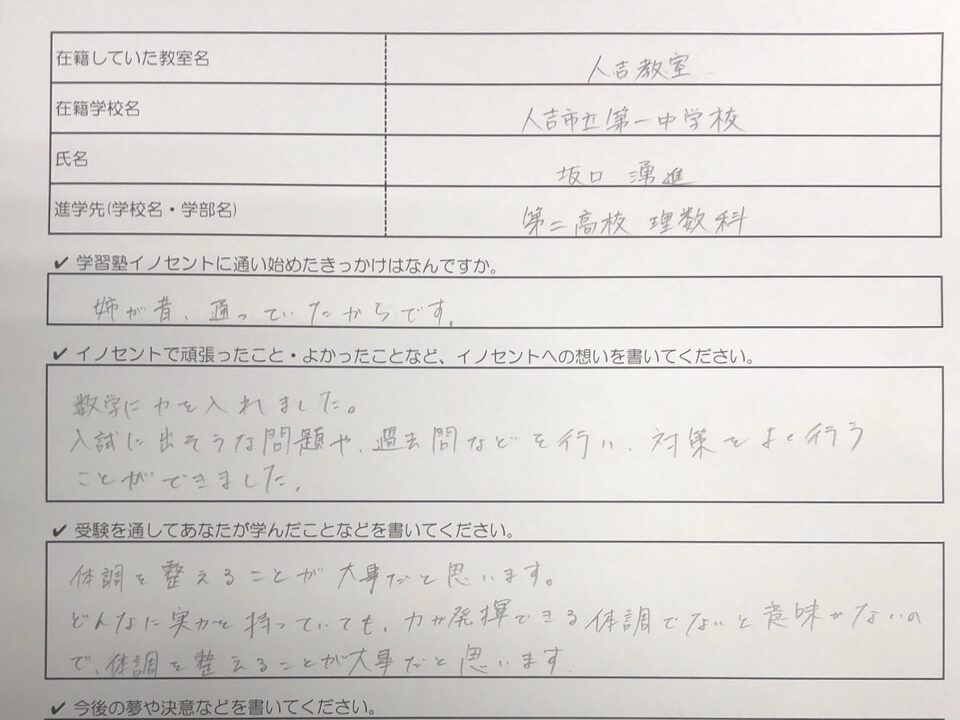 在籍していた教室名 人吉教室
在籍学校名 人吉市立第一中学校
氏名 坂口 湧進
進学先(学校名・学部名) 第二高校 理数科
✓ 学習塾イノセントに通い始めたきっかけはなんですか。
姉が昔、通っていたからです。
✓ イノセントで頑張ったこと・よかったことなど、イノセントへの想いを書いてください。
数学に力を入れました。
入試に出そうな問題や、過去問などを行い、対策をよく行う
ことができました。
✓ 受験を通してあなたが学んだことなどを書いてください。
体調を整えることが大事だと思います。
どんなに実力を持っていても、力が発揮できる体調でないと意味がないの
で、体調を整えることが大事だと思います.
✓ 今後の夢や決意などを書いてください。